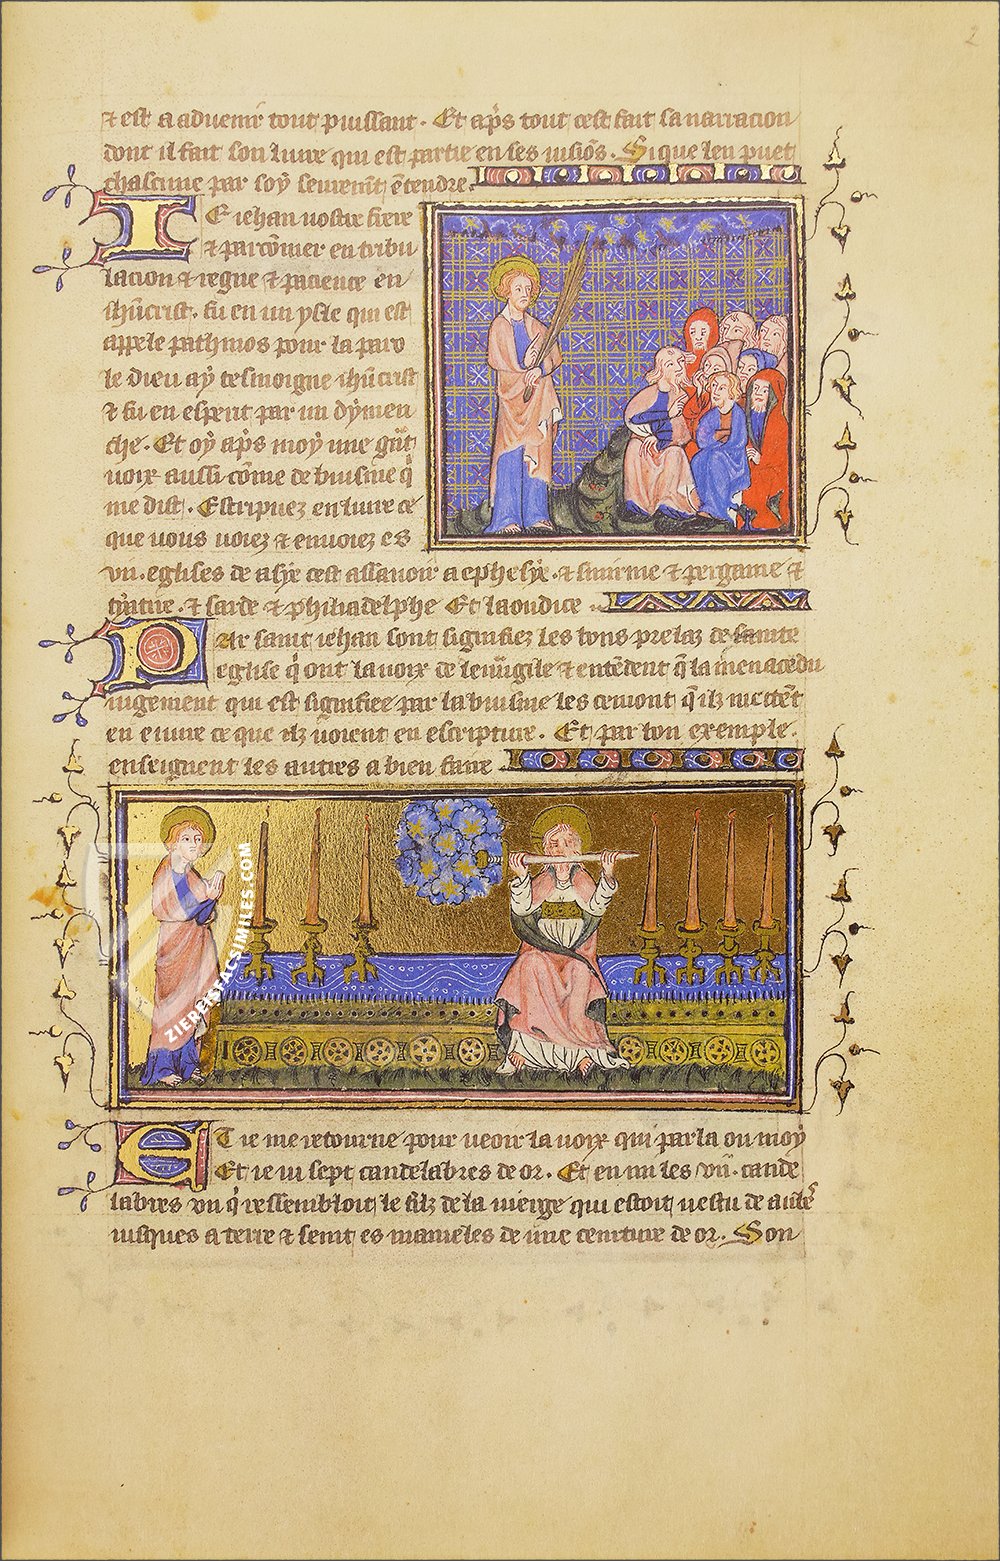 2
⁊ est a advenir tout puissant. Et ap̄s tout cest fait sa narracion
dont il fait son livre qui est partie en ses visiōs. Si que len puet
chascune par soy seurem̄t ētendre.
Ie iehan vostre frere
⁊ parcōnier en tribu
lacion ⁊ regne ⁊ pacience en
ihūcrist. fu en un ysle qui est
appele pathmos pour la paro
le dieu ay tesmoigne ihūcrist
⁊ fu en esperit par un dymen
che. Et oy ap̄s moy une gūt
voix aussi cōme de buisine q̄
me dist. Escripuez en livre ce
que vous voiez ⁊ envoiez es
vii. eglises de asye cest assavoir a ephesye. ⁊ smirme ⁊ pergame ⁊
⁊ sarde ⁊ philadelphe Et laoudice
Par saint iehan sont signifiez les bons prelaz de sainte
eglise q̄ ont la voix de levūgile ⁊ entēdent q̄ la menace du
iugement qui est signifiee par la buisine les semont q̄ ilz mettēt
en livre ce que ilz voient en escripture. Et par bon exemple.
enseignent les autres a bien faire
ZIEREISFACSIMILES.COM
Et ie me retourne pour veoir la voix qui parla ou moy
Et ie vi sept candelabres de or. Et en mi les vii. cande
labres un q̄ ressembloit le filz de la vierge qui estoit vestu de aube
iusques a terre ⁊ seint es mameles de une ceinture de or. Son